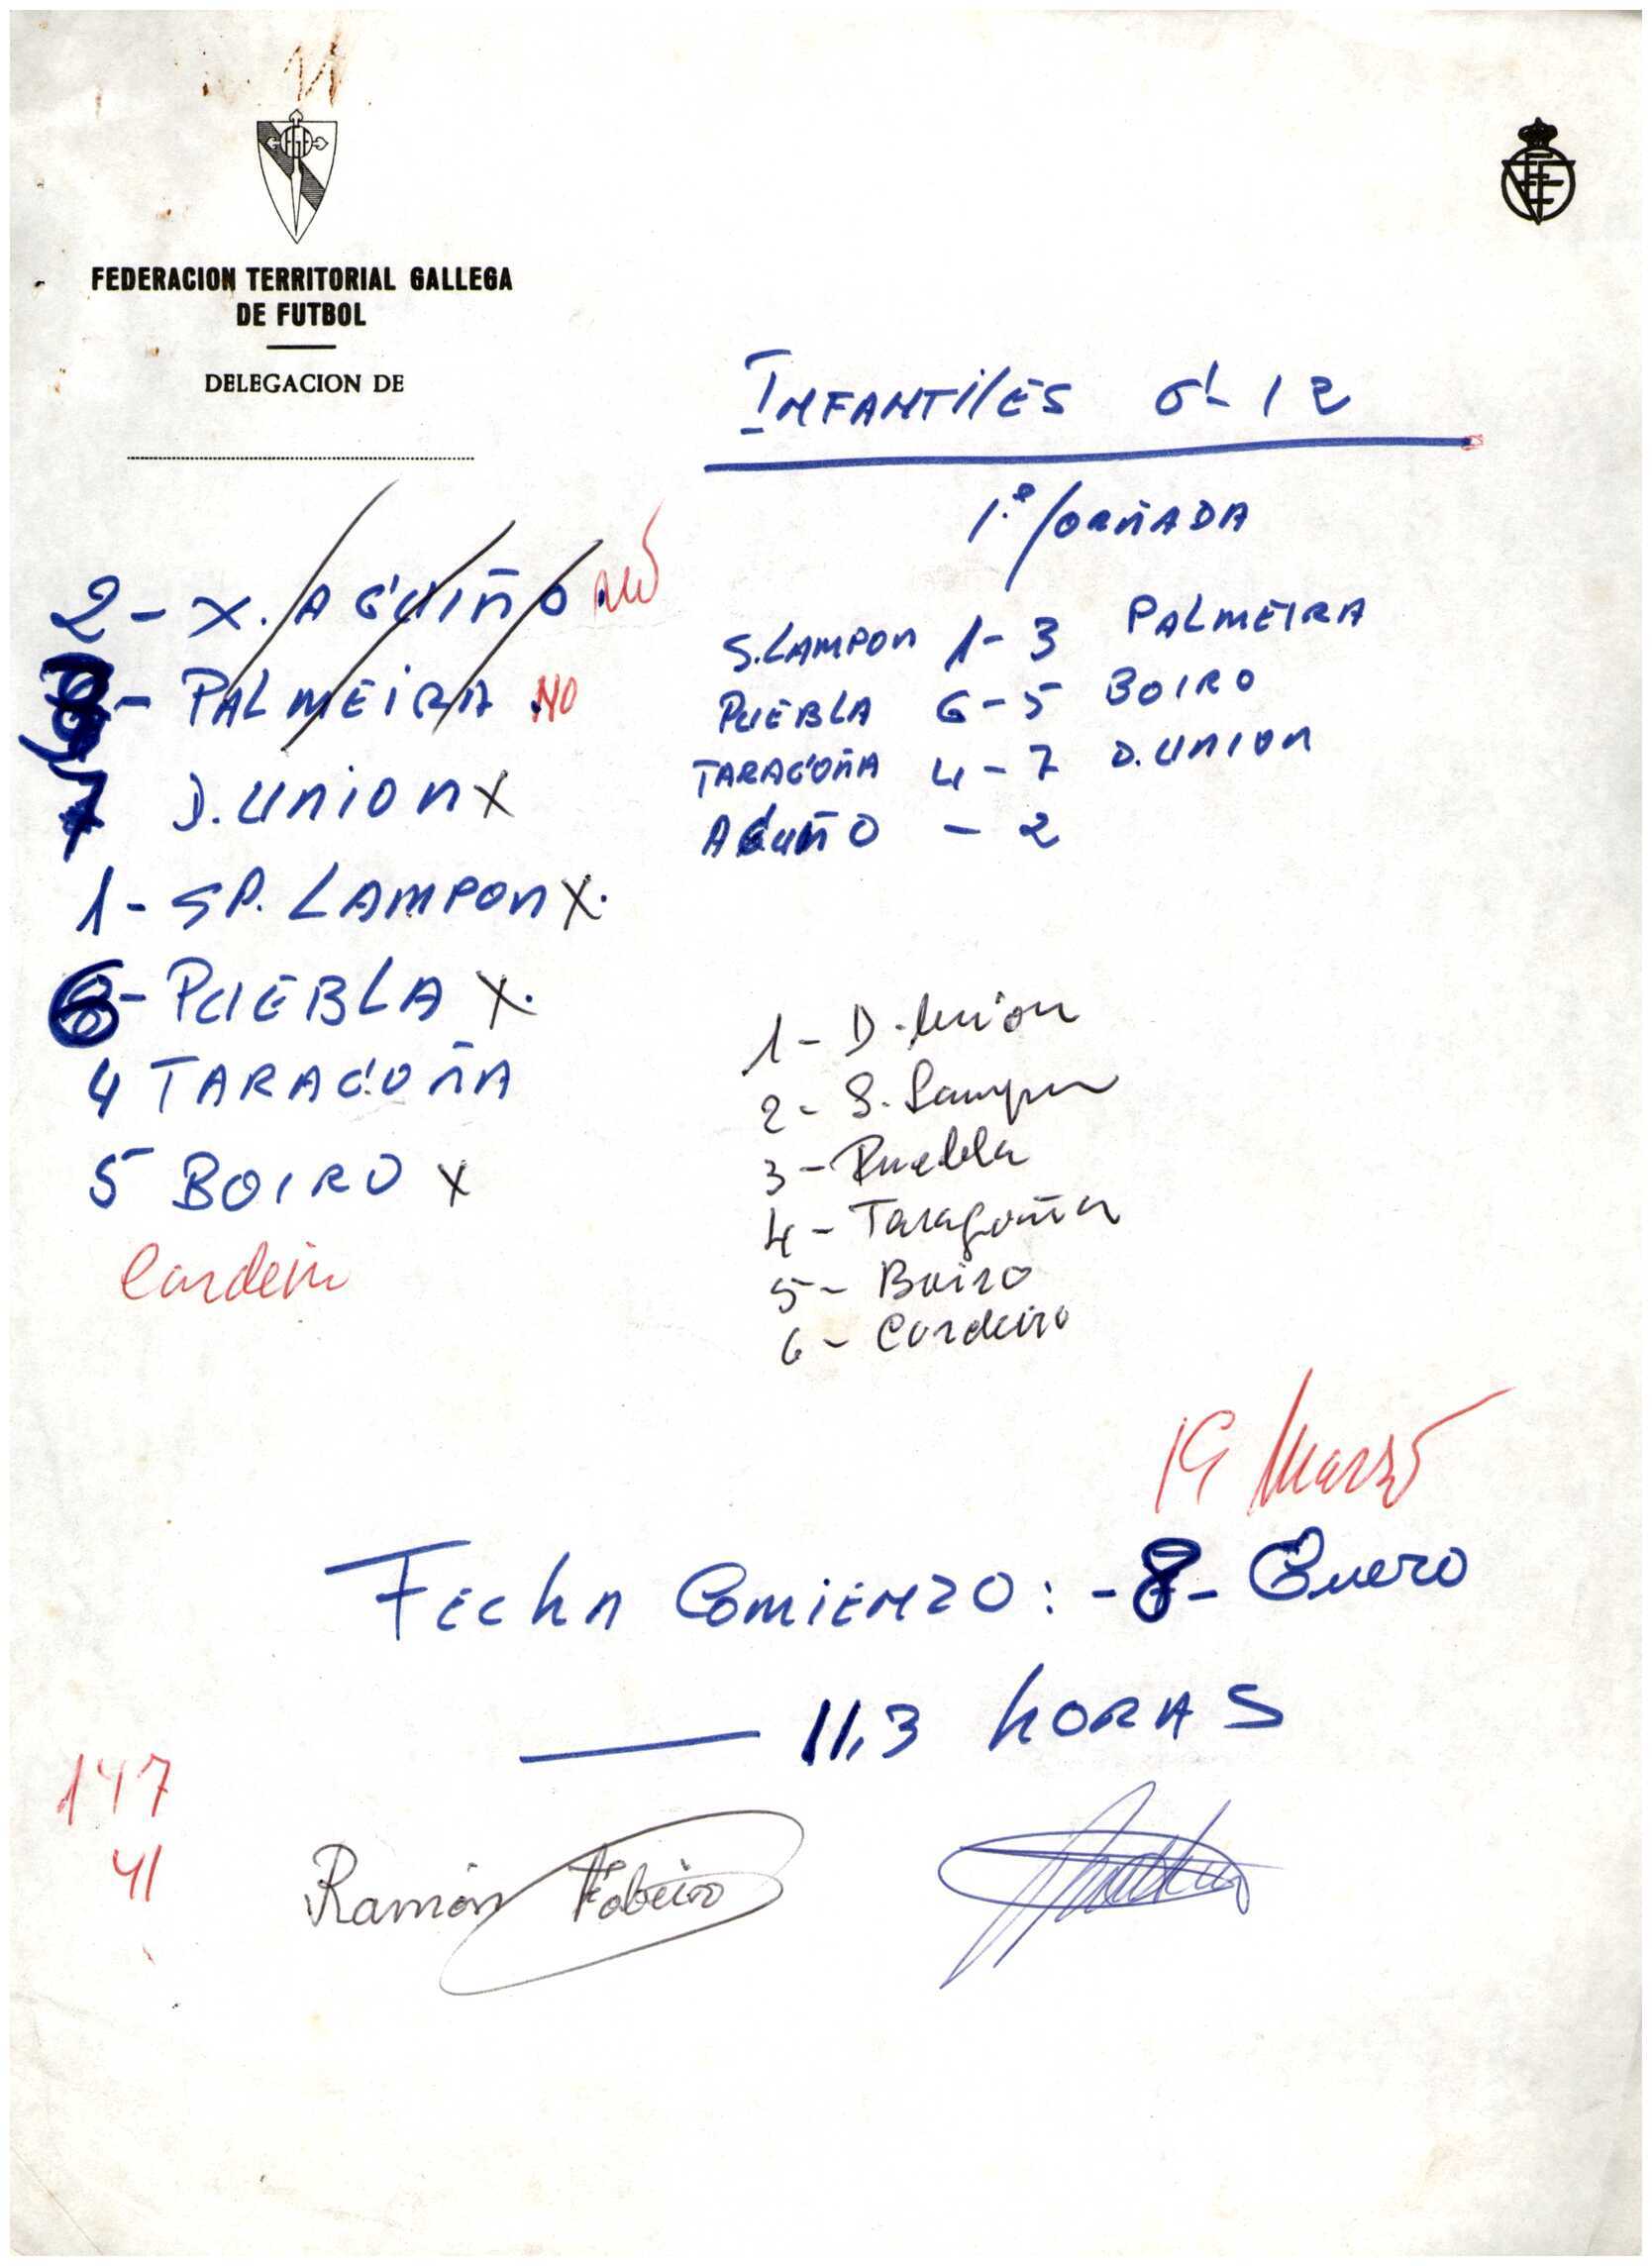 FEDERACION TERRITORIAL GALLEGA
DE FUTBOL
DELEGACION DE
INFANTILES G-12
1.ª JORNADA
2 - X. AGUIÑO. NO
3 - PALMEIRA NO
7 D. UNION X
1 - SP. LAMPON X.
6 - PUEBLA X.
4 TARAGOÑA
5 BOIRO X
Cordeiro
S. LAMPON 1 - 3 PALMEIRA
PUEBLA 6 - 5 BOIRO
TARAGOÑA 4 - 7 D. UNION
AGUIÑO - 2
1 - D. Union
2 - S. Lampon
3 - Puebla
4 - Taragoña
5 - Boiro
6 - Cordeiro
19 Marzo
FECHA COMIENZO: - 8 - Enero
11,3 HORAS
147
41
Ramón Fabeiro